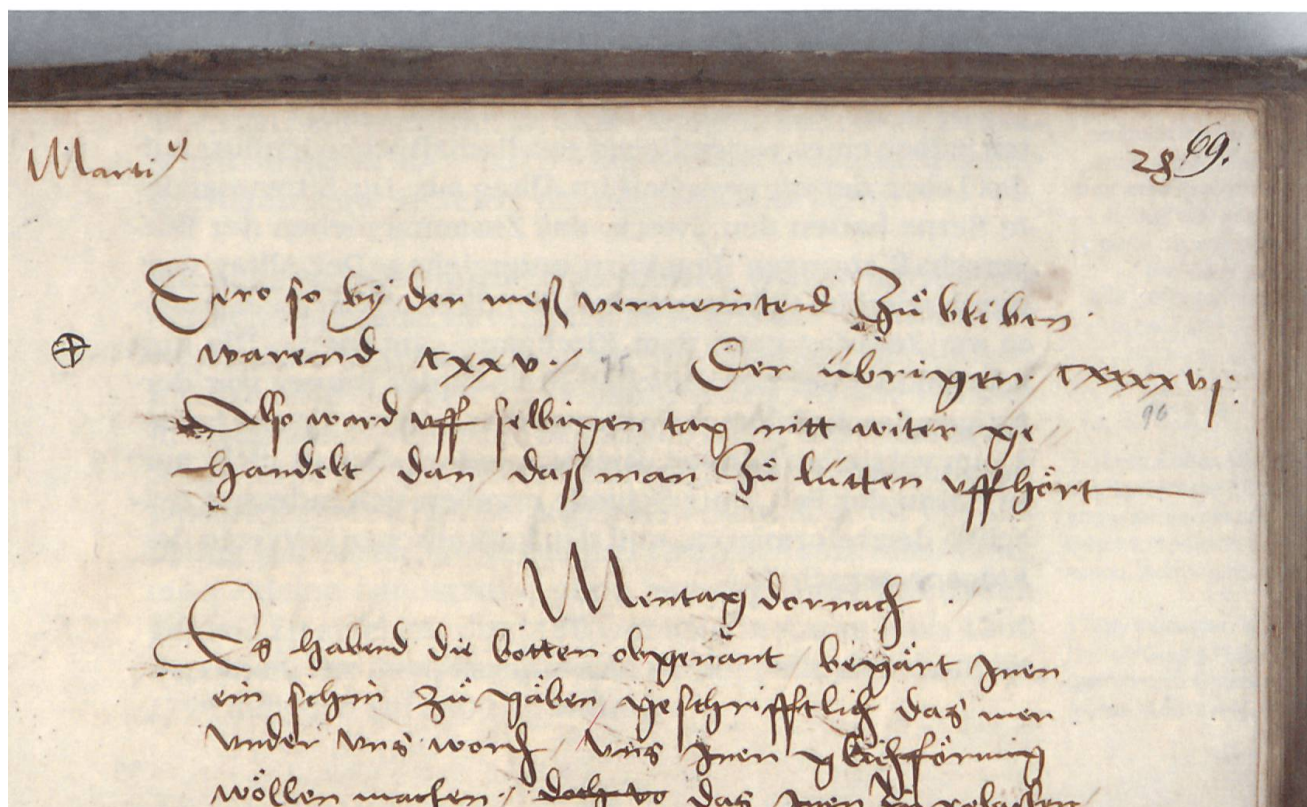 Marti
28 69.
Dero so by der meß vermeintend zů bliben
warend cxxv / Der übrigen / cxxxxvj.
96
Also ward uff selbigen tag nitt witer ge
handelt dan daß man zů lütten uffhört
Mentag dornach
Es habend die botten obgenant begärt inen
ein schin zů gäben geschrifftlich das mer
under uns worden / uns inen glichförmig
wöllen machen / das inen zů gelassen /